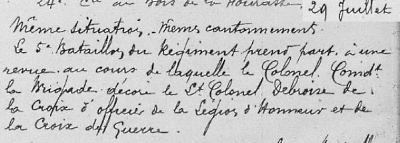 29 Juillet
Même situation, mêmes cantonnements.
Le 5e Bataillon du Régiment prend part à une
revue au cours de laquelle le Colonel Comdt
la Brigade décore le Lt Colonel Debroise de
la Croix d'officier de la Légion d'Honneur et de
la Croix de Guerre.